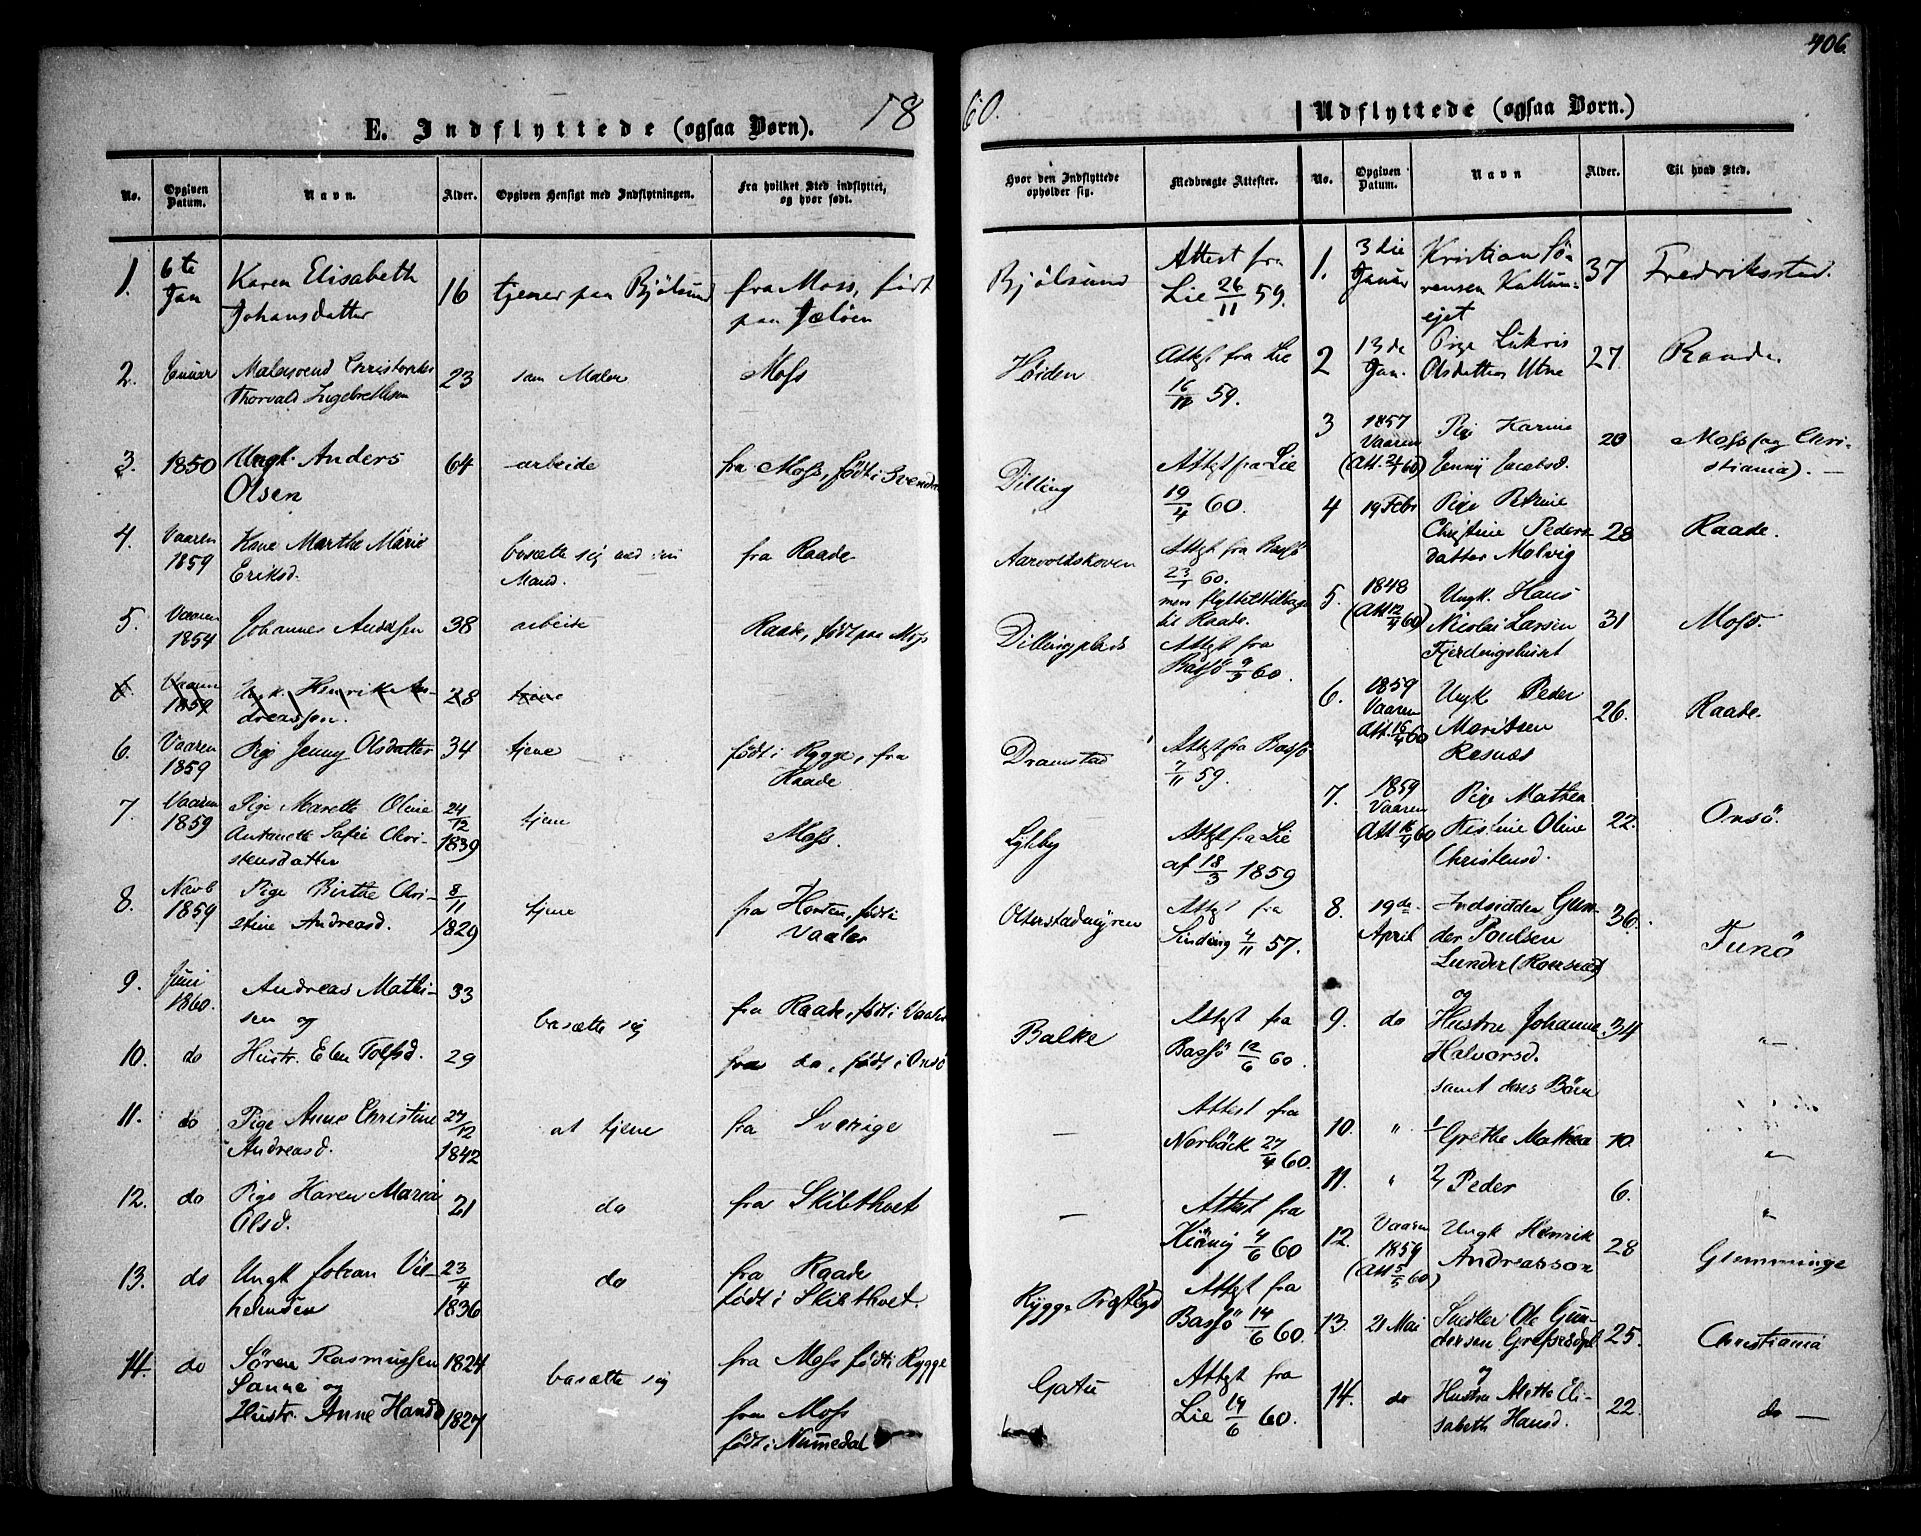 406.
1860.
E. Indflyttede (ogsaa Børn).
No. Opgiven Datum. Navn. Alder. Opgiven Hensigt med Indflytningen. Fra hvilket Sted indflyttet, og hvor født. Hvor den Indflyttede opholder sig. Medbragte Attester.
1. 6te Jan Karen Elisabeth Johansdatter 16 tjener paa Bjølsund fra Moss, født paa Jeløen Bjølsund Attest fra Lie 26/11 59.
2. Malersvend Christopher Thorvald Ingebrethsen 23 som Maler Moss Høiden Attest fra Lie 59.
3. 1850 Ungk. Anders Olsen 64 arbeide fra Moss, født i Dilling Attest fra Lie 19/4 60.
4. Vaaren 1859 Kone Marthe Marie Eriksd. bosætte sig ved sin Mand. fra Raade Aarvoldskoven Attest fra Bassø 60. men flyttet tilbage til Raade.
5. Vaaren 1854 Johannes Andersen 38 arbeide Raade, født paa Moss Dillingplads Attest fra Bassø 60.
6 Vaaren 1859 Ungk. Henrik Andreassen. 28 tjene
6. Vaaren 1859 Pige Jenny Olsdatter 34 tjene født i Rygge, fra Raade Dramstad Attest fra Bassø 7/11 59.
7. Vaaren 1859 Pige Marette Oline Antonette Sofie Christensdatter 24/12 1839 tjene Moss. Lylby Attest fra Lie af 18/3 1859
8. Novb 1859 Pige Birthe Christine Andreasd. 8/11 1829 tjene fra Horten, født i Vaaler Attest fra Sinding 4/11 57.
9. Juni 1860. Andreas Mathisen og 33 bosætte sig fra Raade, født i Vaaler Balke Attest fra Bassø 12/6 60.
10. do Hustr. Elen Tolfsd. 29 fra do, født i Onsø
11. do Pige Anne Christine Andreasd. 27/12 1842 at tjene fra Sverige — Attest fra Norbäck 27/4 60.
12. do Pige Karen Maria Olsd. 21 do fra Skibthvet — Attest fra 4/6 60
13. do Ungk Johan Vilhelmsen 23/4 1836 do fra Raade født i Skibthvet. Rygge Præstegd Attest fra Bassø 14/6 60.
14. do Søren Rasmussen Sanne og 1824 bosætte sig fra Moss født i Rygge Gatu Attest fra Lie 14/6 60.
Hustr. Anne Hansd 1827 fra Moss født i Numedal
Udflyttede (ogsaa Børn.)
No. Opgiven Datum. Navn Alder. Til hvad Sted.
1. 3die Januar Kristian Sørensen 37 Fredriksstad.
2 13de Jan. Pige Lukris Olsdatter Utne 27. Raade.
3 1857 Vaaren (Att. 60) Pige Karine Jenny Jacobsd. 20 Moss (og Christiania). —
4 19 Febr Pige Petrine Christine Pedersdatter Molvig 28 Raade.
5. 1848 (Att 12/4 60) Ungk. Hans Nicolai Larsen Fjerdingshuset 31 Moss.
6. 1859 Vaaren Att. 16/4 60 Ungk Peder Moritsen Resnæs 26. Raade.
7. 1859 Vaaren Att 16/4 60 Pige Mathea Kistine Oline Christensd. 22. Onsø.
8. 19de April Indsidder Gunder Poulsen Lunder og 36. Tunø
9. do Hustru Johanne Halvorsd. samt deres Børn 34 〃
10. 〃 1/ Grethe Mathea 10. 〃
11. 〃 2/ Peder 6. 〃
12. Vaaren 1859 (Att 5/5 60) Ungk Henrik Andreassen 28 Glemminge
13. 21 Mai Snedker Ole Gundersen og 25. Christiania
14. do Hustru Mette Elisabeth Hansd. 22. do —